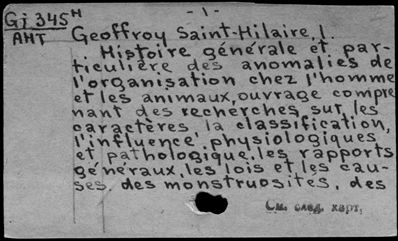 - 1 -
Gi 345 н
АНТ
Geoffroy Saint-Hilaire, I.
Histoire générale et par-
ticulière des anomalies de
l'organisation chez l'homme
et les animaux, ouvrage compre
nant des recherches sur les
caractères, la classification,
l'influence physiologiques
et pathologique, les rapports
généraux, les lois et les cau-
ses, des monstruosités, des
См. след. карт.